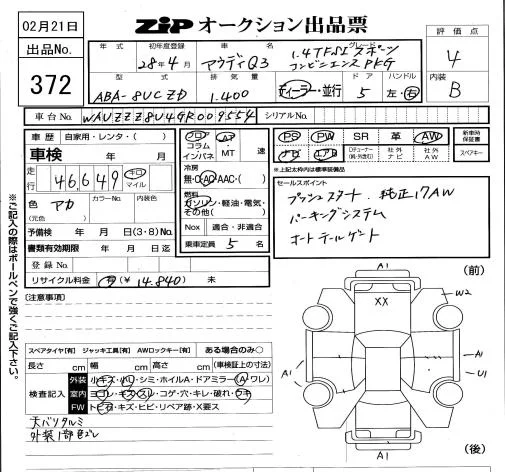 02月21日
ZIP オークション出品票
評価点
4
内装
B
出品No.
372
年式 初年度登録 車名 グレード
28年4月 アウディQ3 1.4TFSI スポーツ
コンビニエンスPKG
型式 排気量 ドア ハンドル
ABA-8UCZD 1.400 ディーラー・並行 5 左・右
車台No. WAUZZZ8U4GR009554 シリアルNo.
車歴 自家用・レンタ・( )
車検 年 月
走行 46,649 キロ マイル
色 アカ カラーNo. 内装色
(元色)
予備検 年 月 日(3・8)No.
書類有効期限 年 月 日迄
登録No.
リサイクル料金 有(¥ 14,840) 未
フロア
コラム
インパネ
AT
・
MT
速
冷房
無・C・AC・AAC・( )
燃料
ガソリン・軽油・電気・
その他( )
Nox 適合・非適合
乗車定員 5 名
PS PW SR 革 AW
ナビ エアB Dチューナー(純・外含む) 社外ナビ 社外AW
新車時保証書
スペアキー
*上記太枠内は標準装備品
セールスポイント
プッシュスタート 純正17AW
パーキングシステム
オートテールゲート
※ご記入の際はボールペンで強くご記入下さい。
[注意事項]
スペアタイヤ[有] ジャッキ工具[有] AWロックキー[有] ある場合のみ○
長さ cm 幅 cm 高さ cm (車検証上の寸法)
検査記入
外装 小キズ・小凹・シミ・ホイルA・ドアミラー(A・ワレ)
室内 ヨゴレ・キズ・スレ・コゲ・穴・キレ・破れ・ウキ
FW トビ石・キズ・ヒビ・リペア跡・X要ス
天バリタルミ
外装1部色ズレ
A1
(前)
XX
W2
A1
A1
U1
A1
(後)